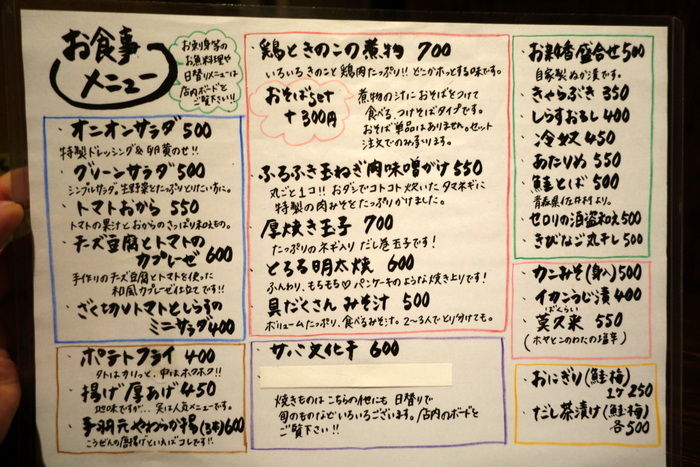 お食事
メニュー
お刺身等の
お魚料理や
日替りメニューは
店内ボードと
ご覧下さい!!
・オニオンサラダ 500
特製ドレッシング&卵黄のせ!!
・グリーンサラダ 500
シンプルサラダ。生野菜をたっぷりとりたい方に。
・トマトおから 550
トマトの果汁とおからのさっぱり和えもの。
・チーズ豆腐とトマトの
カプレーゼ 600
手作りのチーズ豆腐とトマトを使った
和風カプレーゼ仕立てです!!
・ざく切りトマトとしらすの
ミニサラダ 400
・ポテトフライ 400
外はカリっと、中はホクホク!!
・揚げ厚あげ 450
地味ですが…実は人気メニューです。
・手羽元やわらか揚(3本) 600
こうぜんの唐揚げといえばコレです!!
・鶏ときのこの煮物 700
いろいろきのこと鶏肉たっぷり!! どこかホッとする味です。
おそばset
+300円
煮物の汁におそばをつけて
食べる、つけそばタイプです。
おそば単品はありません。セット
注文でのみ承ります。
・ふろふき玉ねぎ肉味噌がけ 550
丸ごと1コ!! おダシでコトコト炊いたタマネギに
特製の肉みそたっぷりかけました。
・厚焼き玉子 700
たっぷりのネギ入りだし巻玉子です!
・とろろ明太焼 600
ふんわり、もちもち♡パンケーキのような焼き上りです!
・具だくさんみそ汁 500
ボリュームたっぷり、食べるみそ汁。2〜3人でとり分けても。
・サバ文化干 600
焼きものはこちらの他にも日替りで
旬のものなどいろいろございます。店内のボードと
ご覧下さい!!
・お新香盛合せ 500
自家製ぬか漬です。
・きゃらぶき 350
・しらすおろし 400
・冷奴 450
・あたりめ 550
・鮭とば 500
青森県佐井村より。
・セロリの酒盗和え 500
・きびなご丸干し 500
・カニみそ(身入) 500
・イカこうじ漬 400
ばくらい
・莫久来 550
(ホヤとこのわたの塩辛)
・おにぎり(鮭・梅)
1ケ 250
・だし茶漬け(鮭・梅)
各500